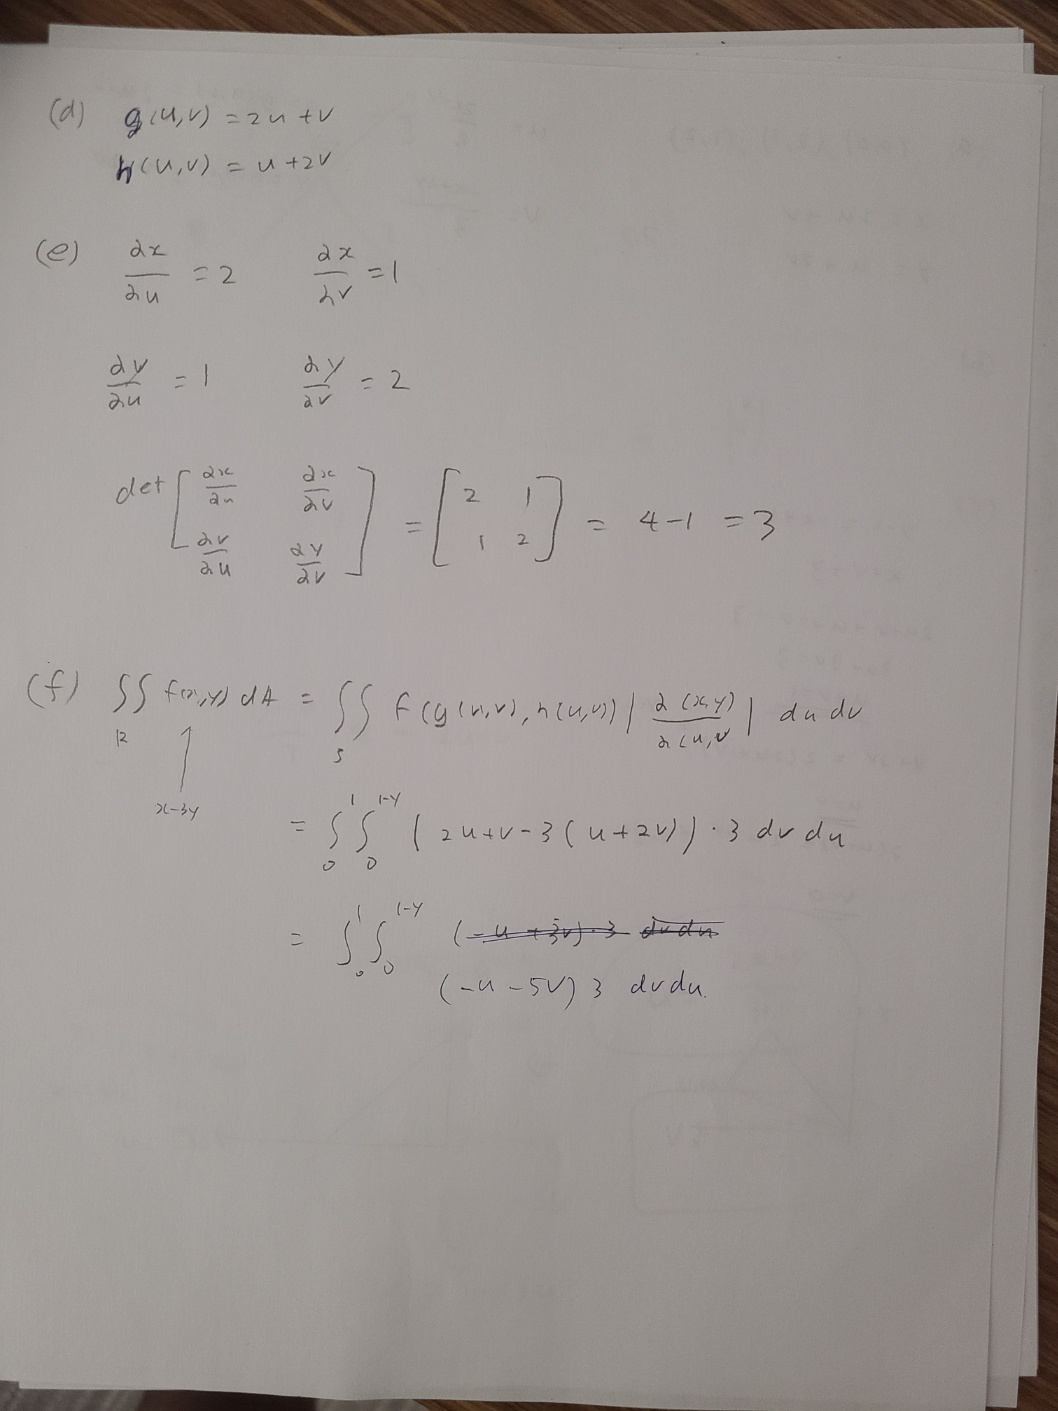 (d) g(u,v) = 2u+v
h(u,v) = u+2v
(e) ∂x/∂u = 2 ∂x/∂v = 1
∂y/∂u = 1 ∂y/∂v = 2
det [∂x/∂u ∂x/∂v; ∂y/∂u ∂y/∂v] = [2 1; 1 2] = 4-1 = 3
(f) ∬_R f(x,y) dA = ∬_S f(g(u,v), h(u,v)) |∂(x,y)/∂(u,v| du dv
x-3y
= ∫_0^1 ∫_0^1-y (2u+v-3(u+2v)) · 3 dv du
= ∫_0^1 ∫_0^1-y
(-u-5v) 3 dv du.